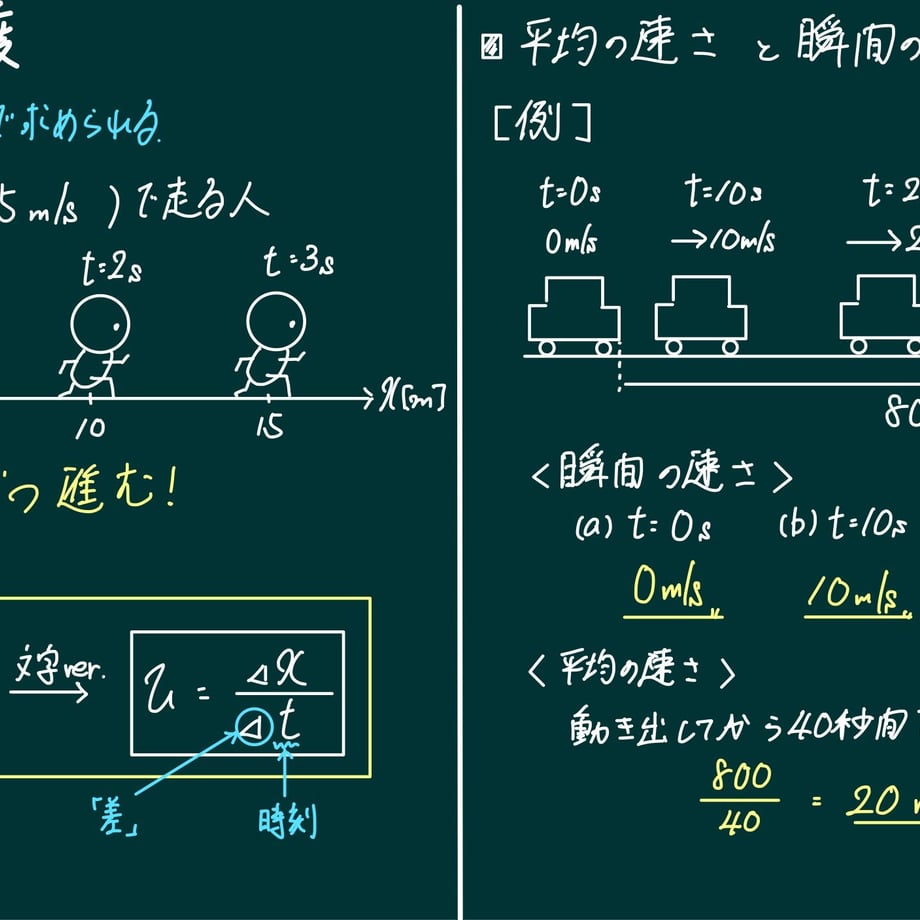 度
で求められる.
5 m/s ) で走る人
t=2s
t=3s
10
15
x[m]
つ 進む!
文字ver.
v = Δx / Δt
「差」
時刻
例 平均の速さ と 瞬間の
[例]
t=0s
t=10s
t=2
0m/s
→10m/s
→2
80
<瞬間の速さ>
(a) t=0s
(b) t=10s
0m/s
10m/s
<平均の速さ>
動き出してから40秒間
800 / 40 = 20